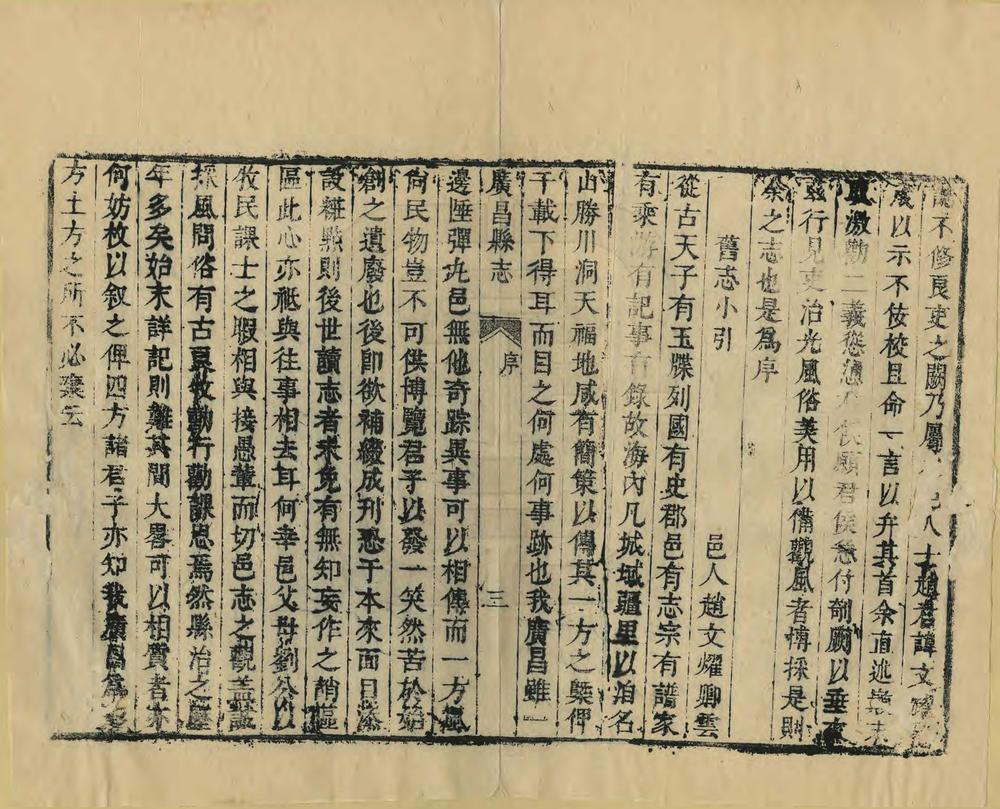 不修良吏之闕乃屬人士趙君諱文
成以示不佞校且命一言以弁其首余直述
激勸二義慫慂願君侯付剞劂以垂
行見吏治光風俗美用以備觀風者慱採是則
余之志也是爲序
舊志小引
邑人趙文燿卿雲
從古天子有玉牒列國有史郡邑有志宗有譜家
有乘游有記事有錄故海內凡城域疆里以洎名
山勝川洞天福地咸有簡策以傳其一方之槩俾
千載下得耳而目之何處何事跡也我廣昌雖一
廣昌縣志
序
三
邊陲彈丸邑無他奇踪異事可以相傳而一方風
尙民物豈不可供博覽君子以發一笑然苦於始
創之遺廢也後卽欲補綴成刊恐于本來面目添
設粧點則後世讀志者未免有無知妄作之誚區
區此心亦祇與往事相去耳何幸邑父母劉公以
牧民課士之暇相與接愚輩而切邑志之觀盖
採風問俗有古良牧勸行勸課思焉然縣治之
年多矣始末詳記則難其間大畧可以相質者亦
何妨枚以叙之俾四方諸君子亦知我廣昌爲
方土方之所不必棄云